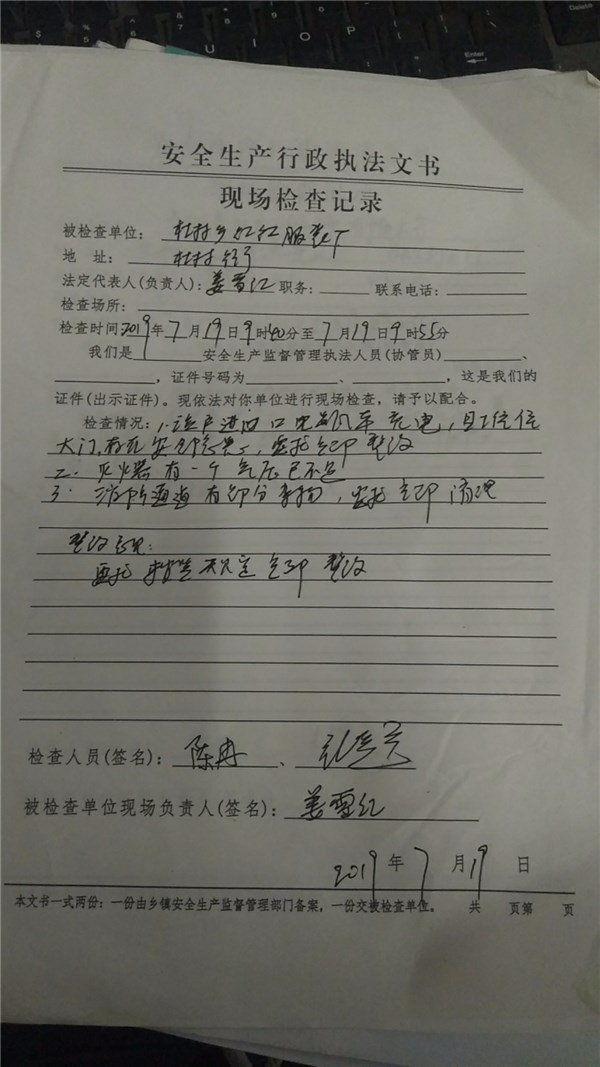 安全生产行政执法文书
现场检查记录
被检查单位: 杜村乡红红服装厂
地 址: 杜村
法定代表人(负责人): 姜雪红 职务: 联系电话:
检查场所:
检查时间: 2019年7月19日9时40分至7月19日9时55分
我们是 安全生产监督管理执法人员(协管员) 、
,证件号码为 、 ,这是我们的
证件(出示证件)。现依法对你单位进行现场检查,请予以配合。
检查情况: 1. 该户进门口电瓶车充电,且
大门,存在安全隐患,要求立即整改
2. 灭火器有一个气压已不足
3. 消防通道有部分杂物,要求立即清理
整改意见:
要求 立即整改
检查人员(签名): 陈冉 、
被检查单位现场负责人(签名): 姜雪红
2019年7月19日
本文书一式两份:一份由乡镇安全生产监督管理部门备案,一份交被检查单位。 共 页第 页